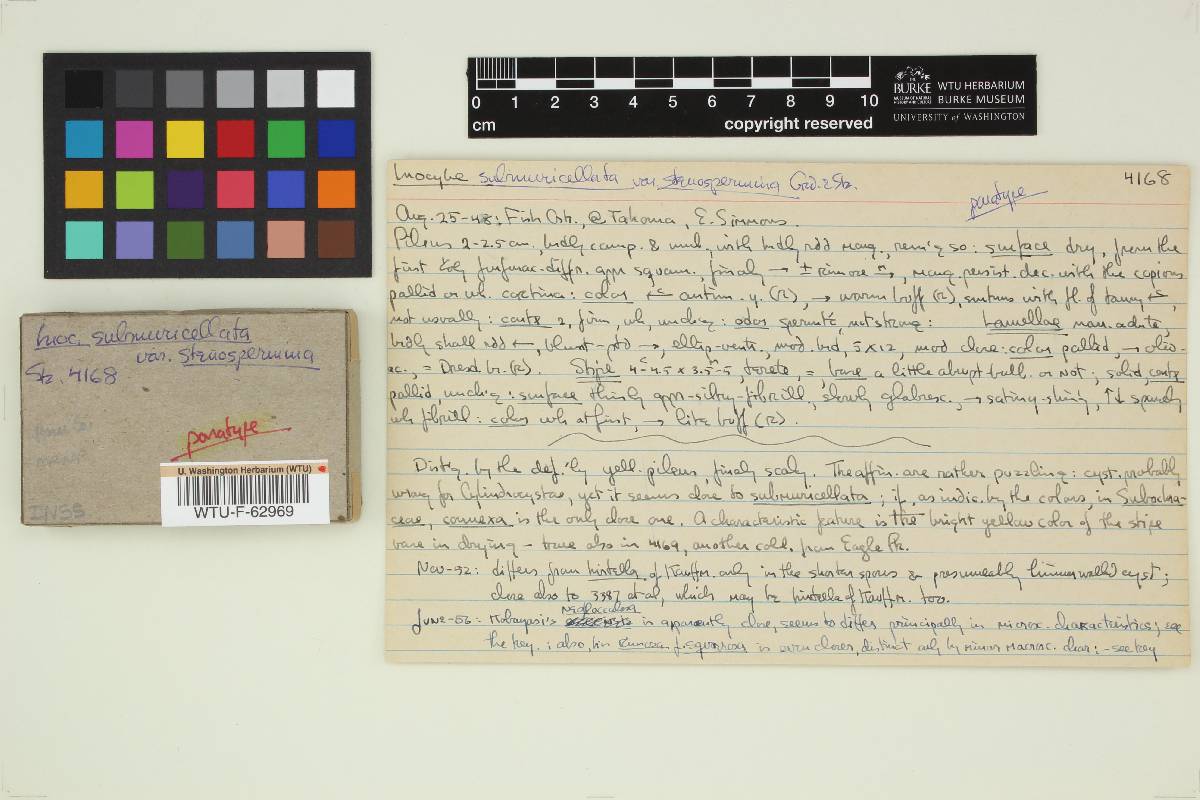 0 1 2 3 4 5 6 7 8 9 10
cm
copyright reserved
THE
BURKE
MUSEUM OF NATURAL
HISTORY AND CULTURE
WTU HERBARIUM
BURKE MUSEUM
UNIVERSITY of WASHINGTON
Inocybe submuricellata var. stenospermina G. & Stz. 4168
paratype
Aug. 25-48; Fish Crk., @ Takoma, E. Simmons.
Pileus 2-2.5 cm, bdly camp. & umb., with bdly rdd marg., rem'g so: surface dry, from the
first furfurac-diffr. appr squam., finaly → ± rimose, marg. persist. dec. with the copious
pallid or wh. cortina: color antim. y. (R), → warm buff (R), smtms with tl. of tawny
not usually: contx 2, firm, wh, undiag: odor spermtc, not strong: Lamellae narr. adnte,
bdly shall rdd, blunt-ptd →, ellip-ventr., mod. brd, 5 x 12, mod close: color pallid, → oliv-
ac., = Dresd. br. (R). Stipe 4-4.5 x 3.5-5, terete, =, base a little abrupt bulb. or not; solid, contx
pallid, undiag: surface thinly appr-silky-fibrill., slowly glabresc., → satiny-shiny, ↑↓ sparsely
wh fibrill: color wh at first, → lite buff (R).
Disting. by the def'ly yell. pileus, finaly scaly. The affin. are rather puzzling: cyst. probably
wrong for Cylindrocystae, yet it seems close to submuricellata; if, as indic. by the colors, in Subochra-
ceae, connexa is the only close one. A characteristic feature is the bright yellow color of the stipe
base in drying – true also in 4169, another coll. from Eagle Pk.
Nov-52: differs from hirtella of Kauffm. only in the shorter spores & presumeably thinner walled cyst;
close also to 3387 et al, which may be hirtella of Kauffm. too.
June-56: Kobayasi's is apparently close, seems to differ principally in microsc. characteristics; see
the key.; also, his f. squarrosa is even closer, distinct only by minor macrosc. char: - see key
Inoc. submuricellata
var. stenospermina
Stz. 4168
paratype
U. Washington Herbarium (WTU)
WTU-F-62969